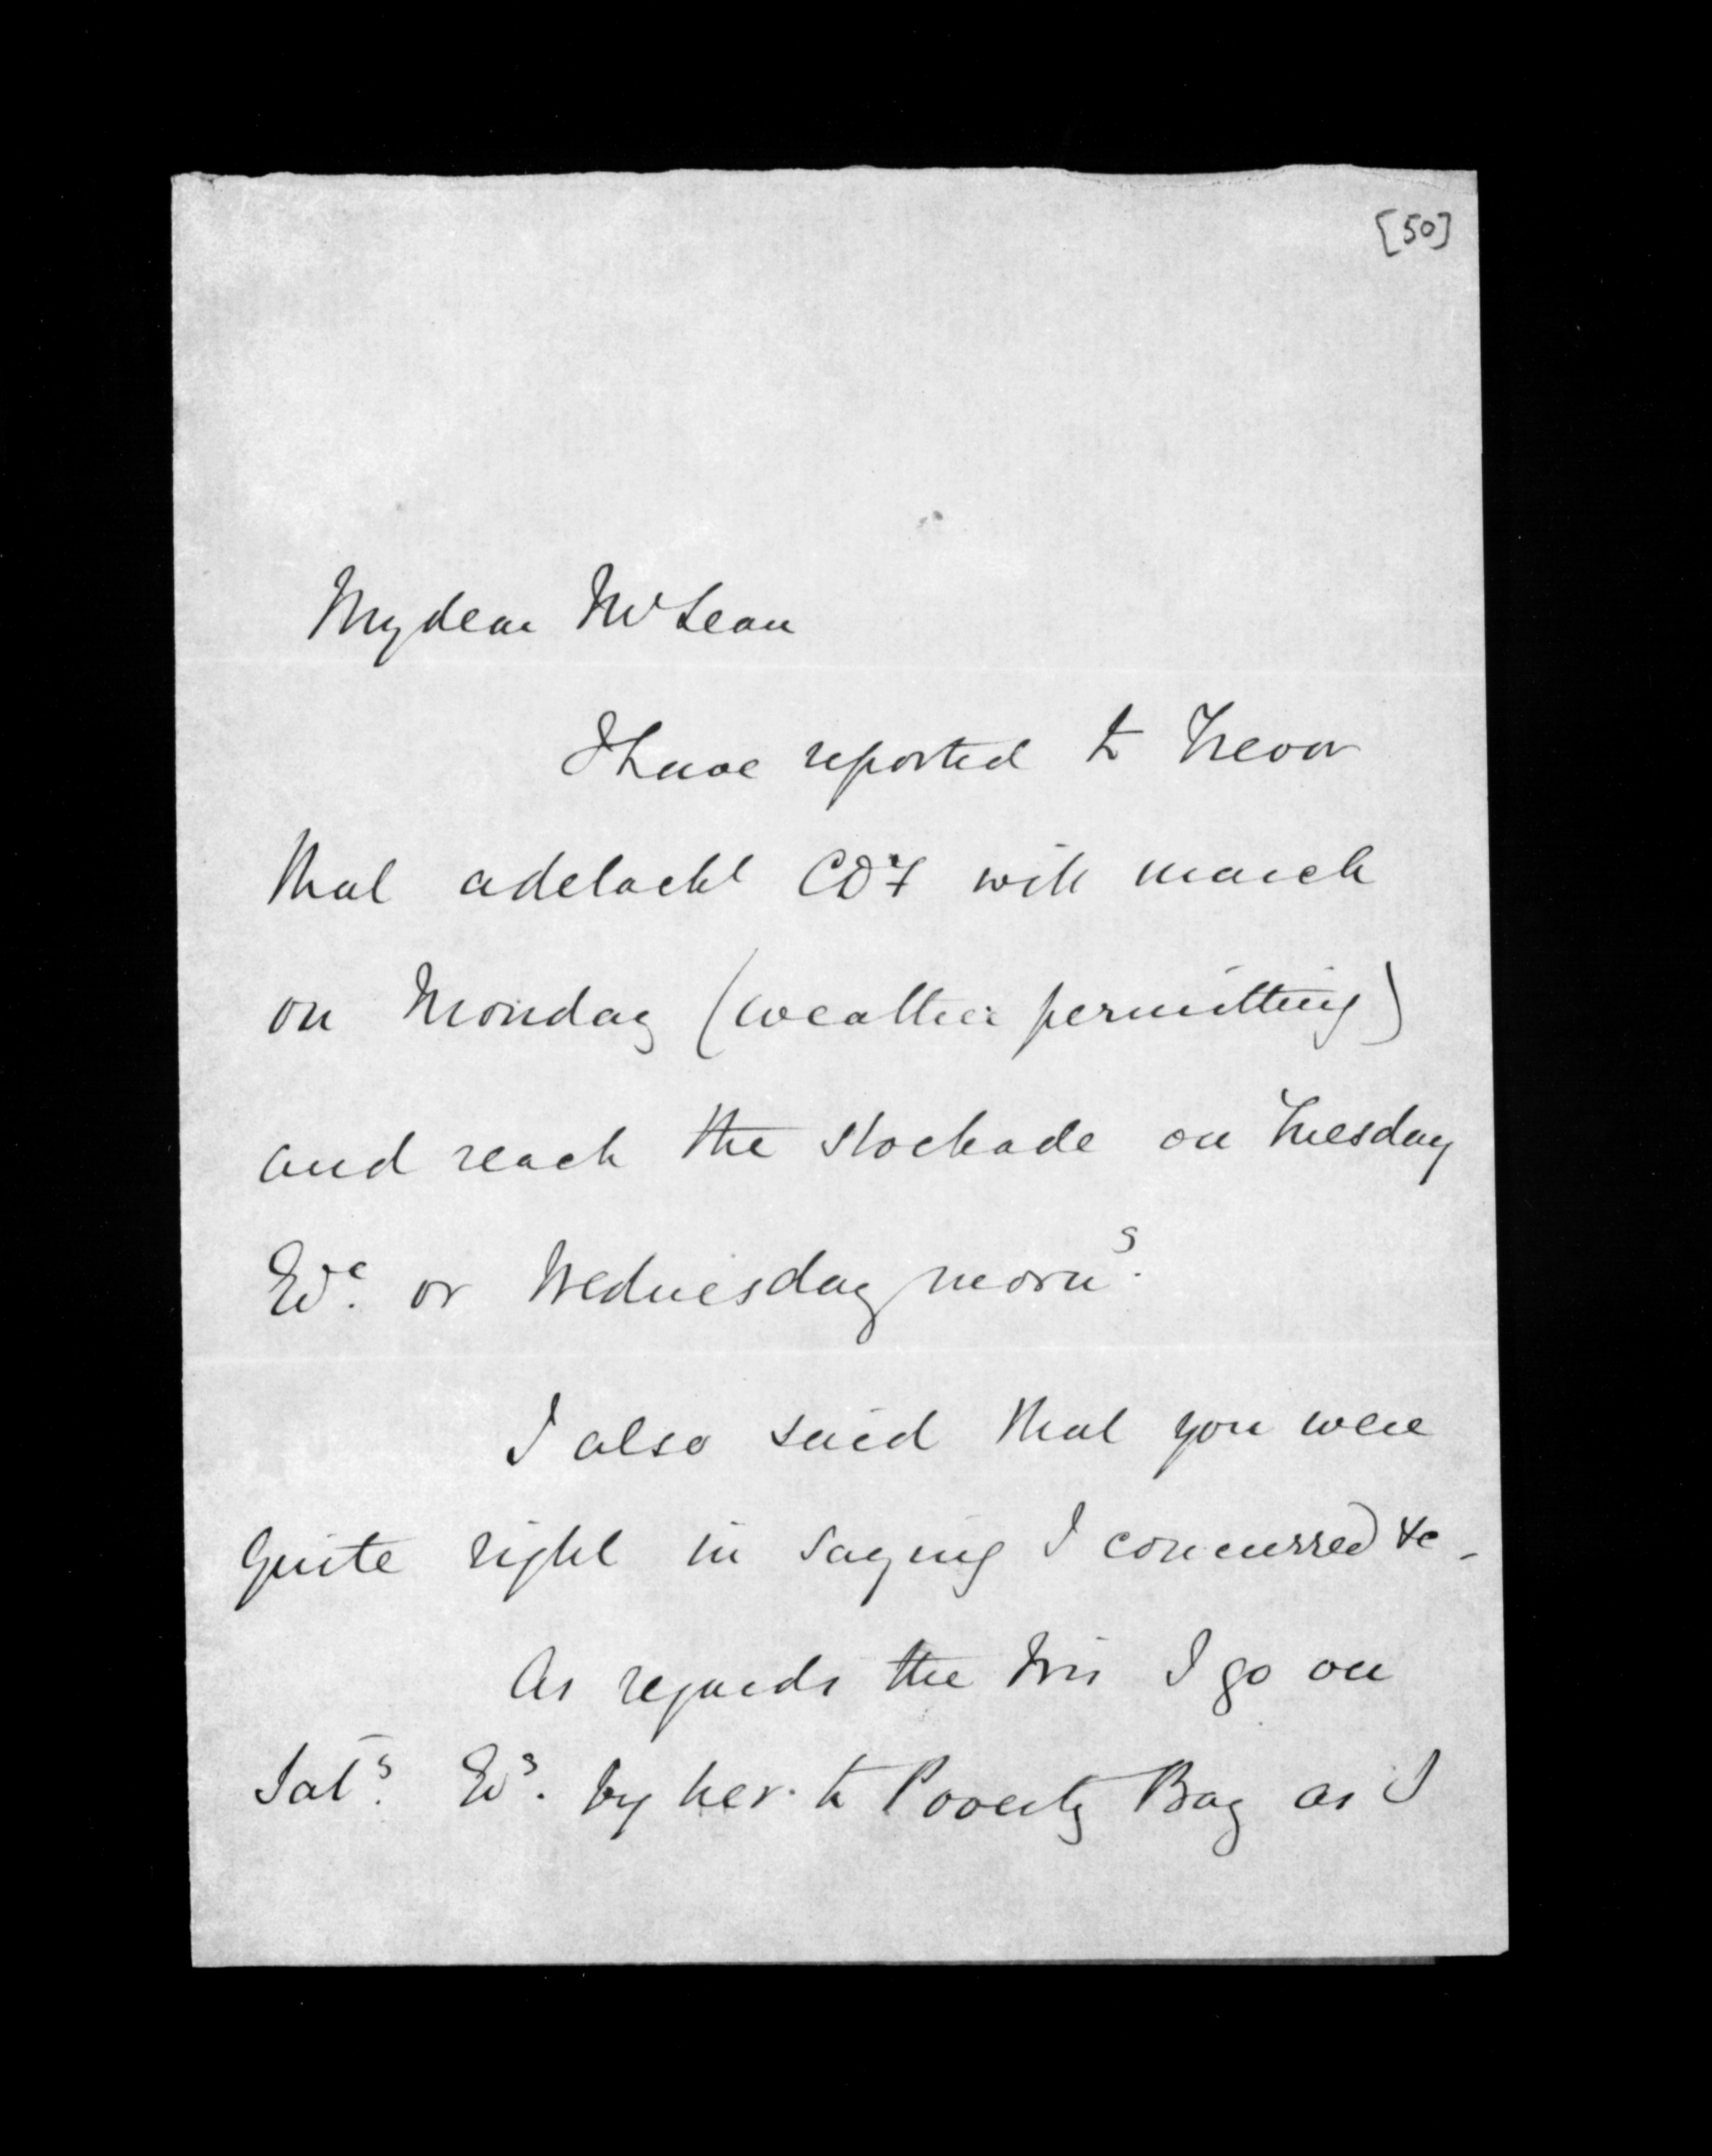 [50]
My dear McLean
I have reported to Trevor
that a detacht CDF will march
on Monday (weather permitting)
and reach the stockade on Tuesday
Eve. or Wednesday morng.
I also said that you were
quite right in saying I concurred &c -
As regards the I go on
Saty. Evg. by her to Poverty Bay as I